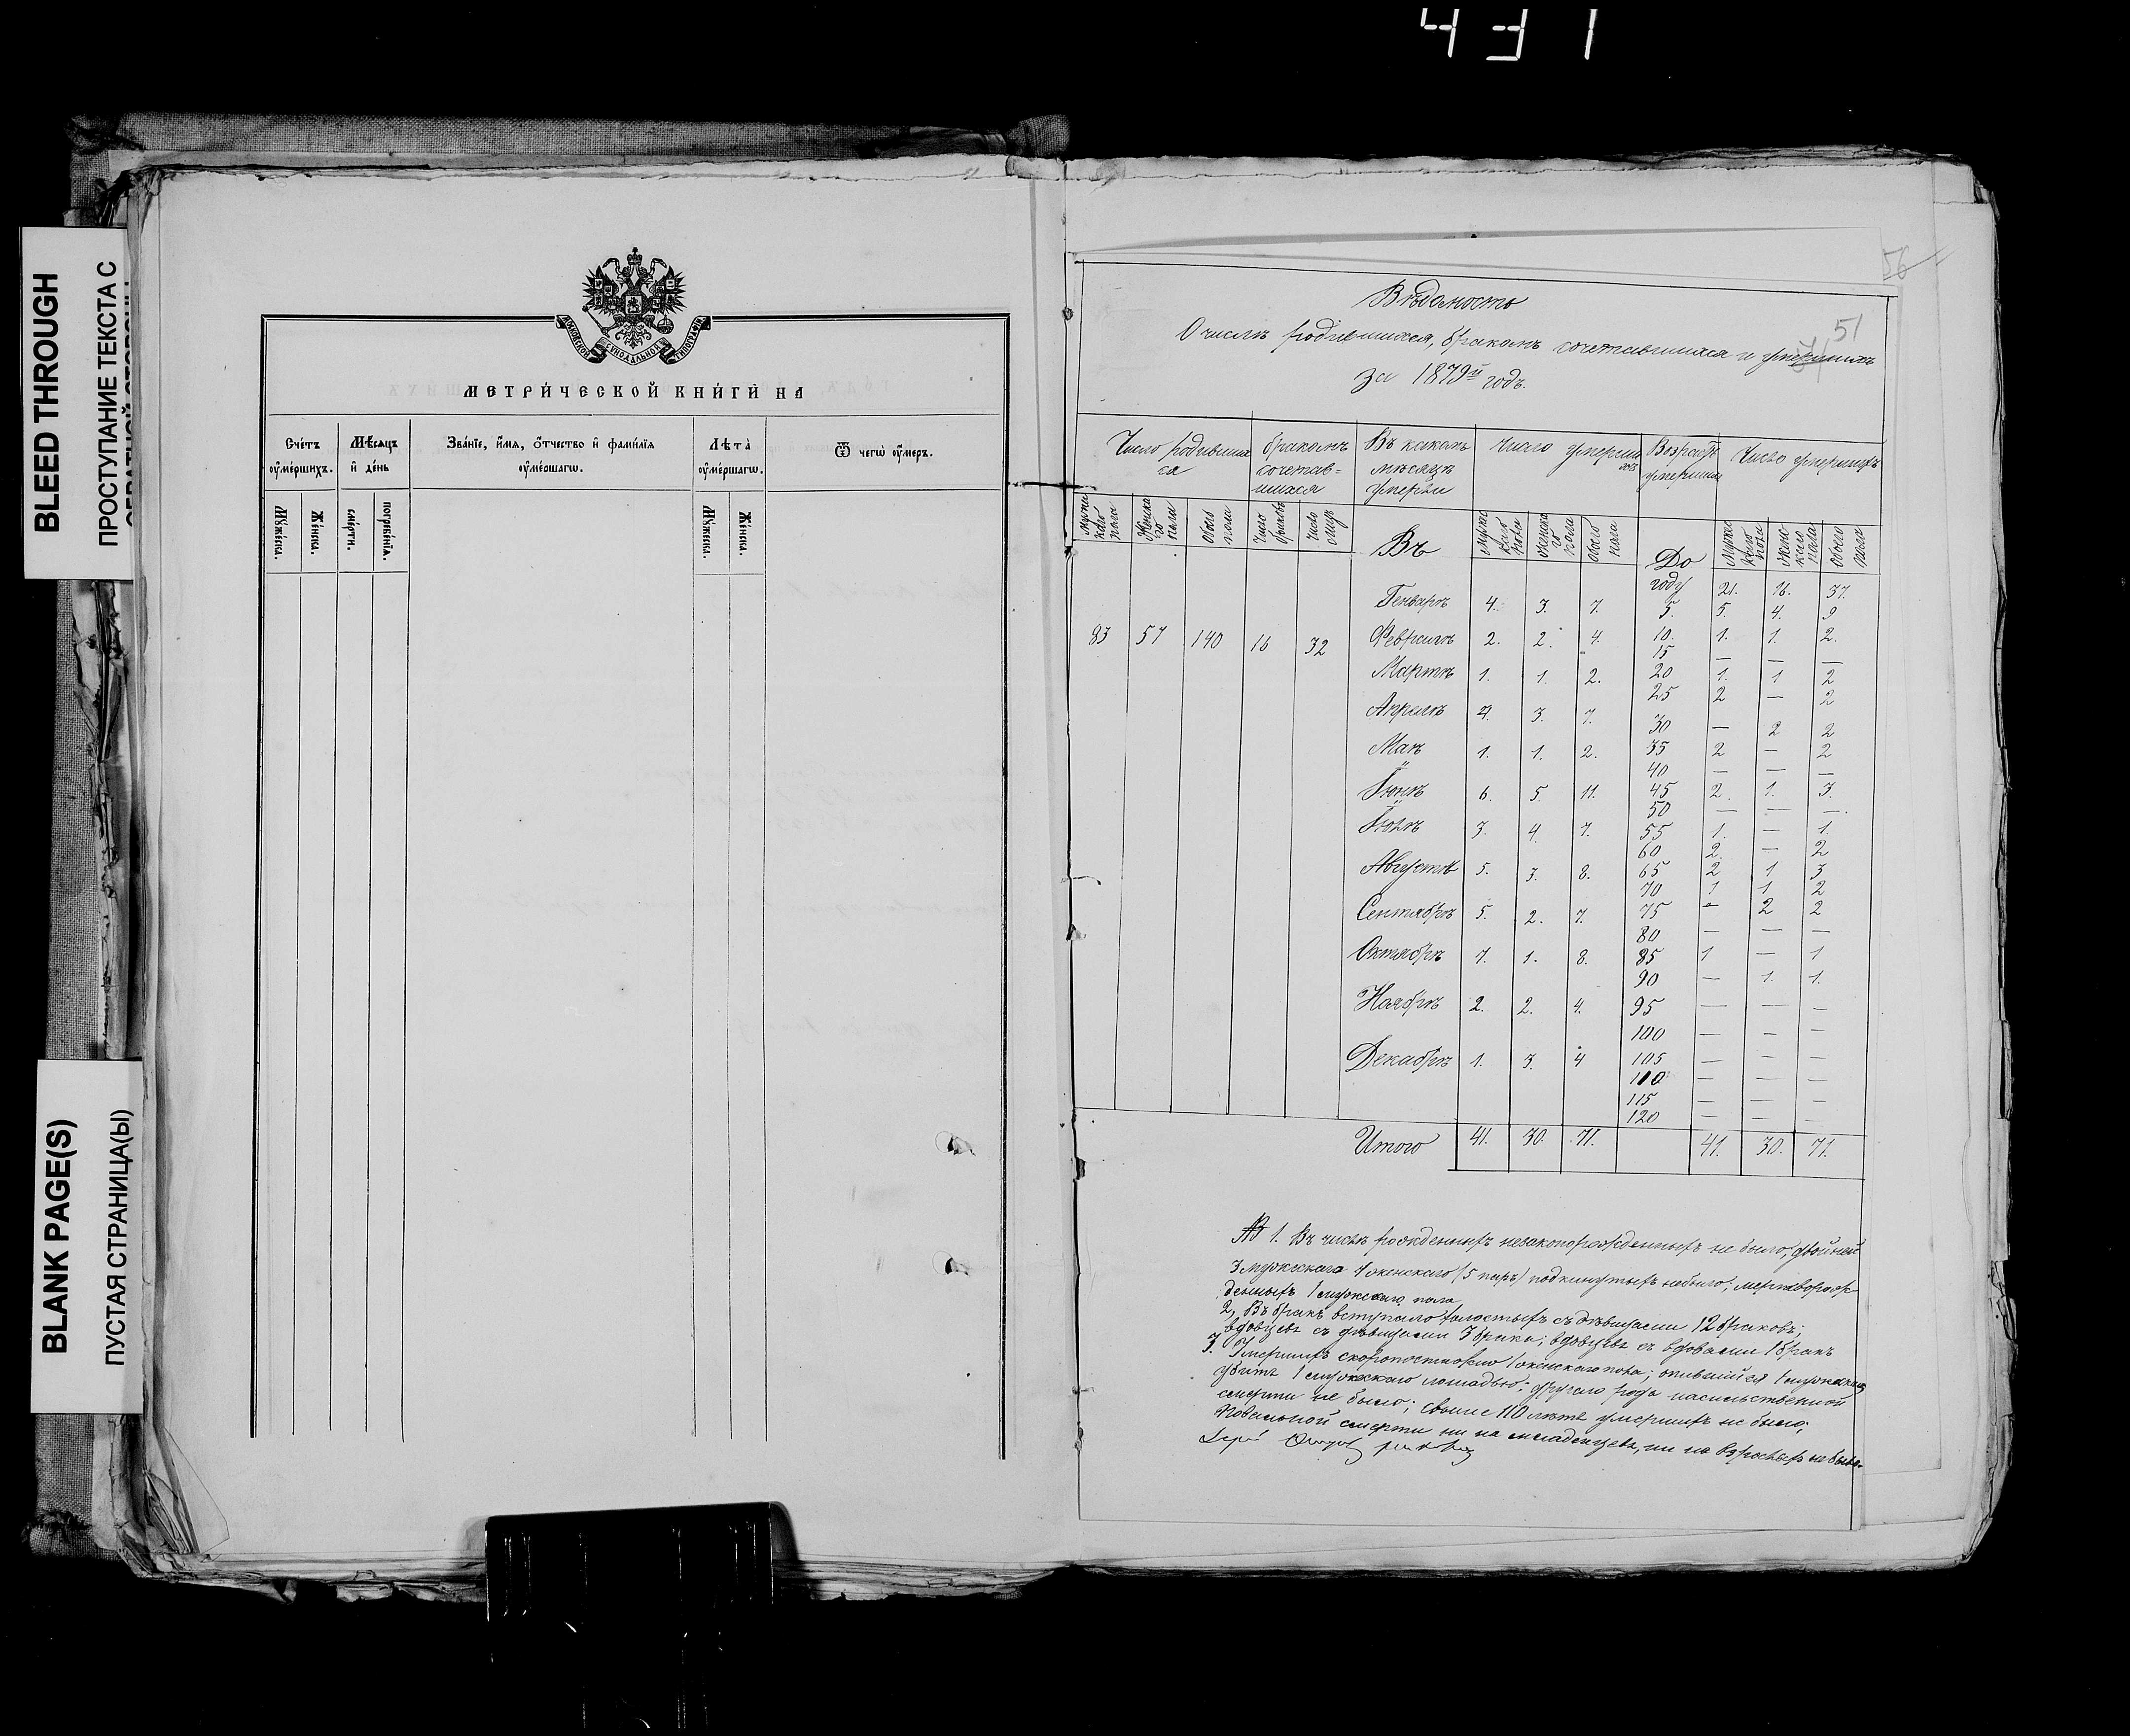 431
BLEED THROUGH
ПРОСТУПАНИЕ ТЕКСТА С
BLANK PAGE(S)
ПУСТАЯ СТРАНИЦА(Ы)
МОСКОВСКОЙ СУНОДАЛЬНОЙ ТИПОГРАФІИ
МЕТРИ́ЧЕСКОЙ КНИ́ГИ НА
Сче́тъ ᲂу҆ме́ршихъ.
Мѣ́сяцъ и҆ де́нь
Зва́нїе, и҆́мѧ, ѻ҆́тчество и҆ фами́лїѧ ᲂу҆ме́ршагѡ.
Лѣ́та ᲂу҆ме́ршагѡ.
Ѿ чегѡ̀ ᲂу҆́меръ.
Мꙋ́жеска.
Же́нска.
сме́рти.
погребе́нїѧ.
Мꙋ́жеска.
Же́нска.
56
51
Вѣдомость
О числѣ родившихся, бракомъ сочетавшихся и умершихъ
за 1879й годъ.
Число родивших ся
бракомъ сочетав= шихся
Въ какомъ мѣсяцѣ умерли
Число умерших
Возрастъ умершихъ
Число умершихъ
Мужс каго пола
Женска го пола
Обоего пола
Число браковъ
Число лицъ
Въ
Мужс каго пола
Женска го пола
Обоего пола
До году
Мужс каго пола
Женс каго пола
Обоего пола
21. 16. 37.
Генварѣ 4. 3. 7.
5. 5. 4. 9
83 57 140 16 32
Февралѣ 2. 2. 4.
10. 1. 1. 2.
15 — — —
Мартѣ 1. 1. 2.
20 1. 1 2
25 2 — 2
Апрѣлѣ 4. 3. 7.
30 — 2 2
Маѣ 1. 1. 2.
35 2 — 2
40 — — —
Іюнѣ 6. 5. 11.
45 2. 1. 3.
50 — — —
Іюлѣ 3. 4 7.
55 1. — 1.
60 2. — 2
Августѣ 5. 3. 8.
65 2 1 3
70 1 1 2
Сентябрѣ 5. 2. 7.
75 — 2 2
80 — — —
Октябрѣ 7. 1. 8.
85 1 — 1
90 — 1. 1.
Ноябрѣ 2. 2. 4.
95 — — —
100 — — —
Декабрѣ 1. 3. 4
105 — — —
110 — — —
115 — — —
120 — — —
Итого 41. 30. 71. 41. 30. 71.
NB 1. Въ числѣ рожденныхъ незаконорожденныхъ не было; двойней
3 мужскаго 7 женскаго (5 паръ) подкинутыхъ небыло; мертворож
денныхъ 1 мужскаго пола
2, Въ бракъ вступило холостыхъ съ дѣвицами 12 браковъ;
вдовцевъ съ дѣвицами 3 брака; вдовцевъ съ вдовами 1 бракъ
3. Умершихъ скоропостижно 1 женскаго пола; опившийся 1 мужскаго
убитъ 1 мужскаго лошадью; другаго рода насильственной
смерти не было; свыше 110 лѣтъ умершихъ не было;
Повальной смерти ни на младенцевъ, ни на взрослыхъ не было.